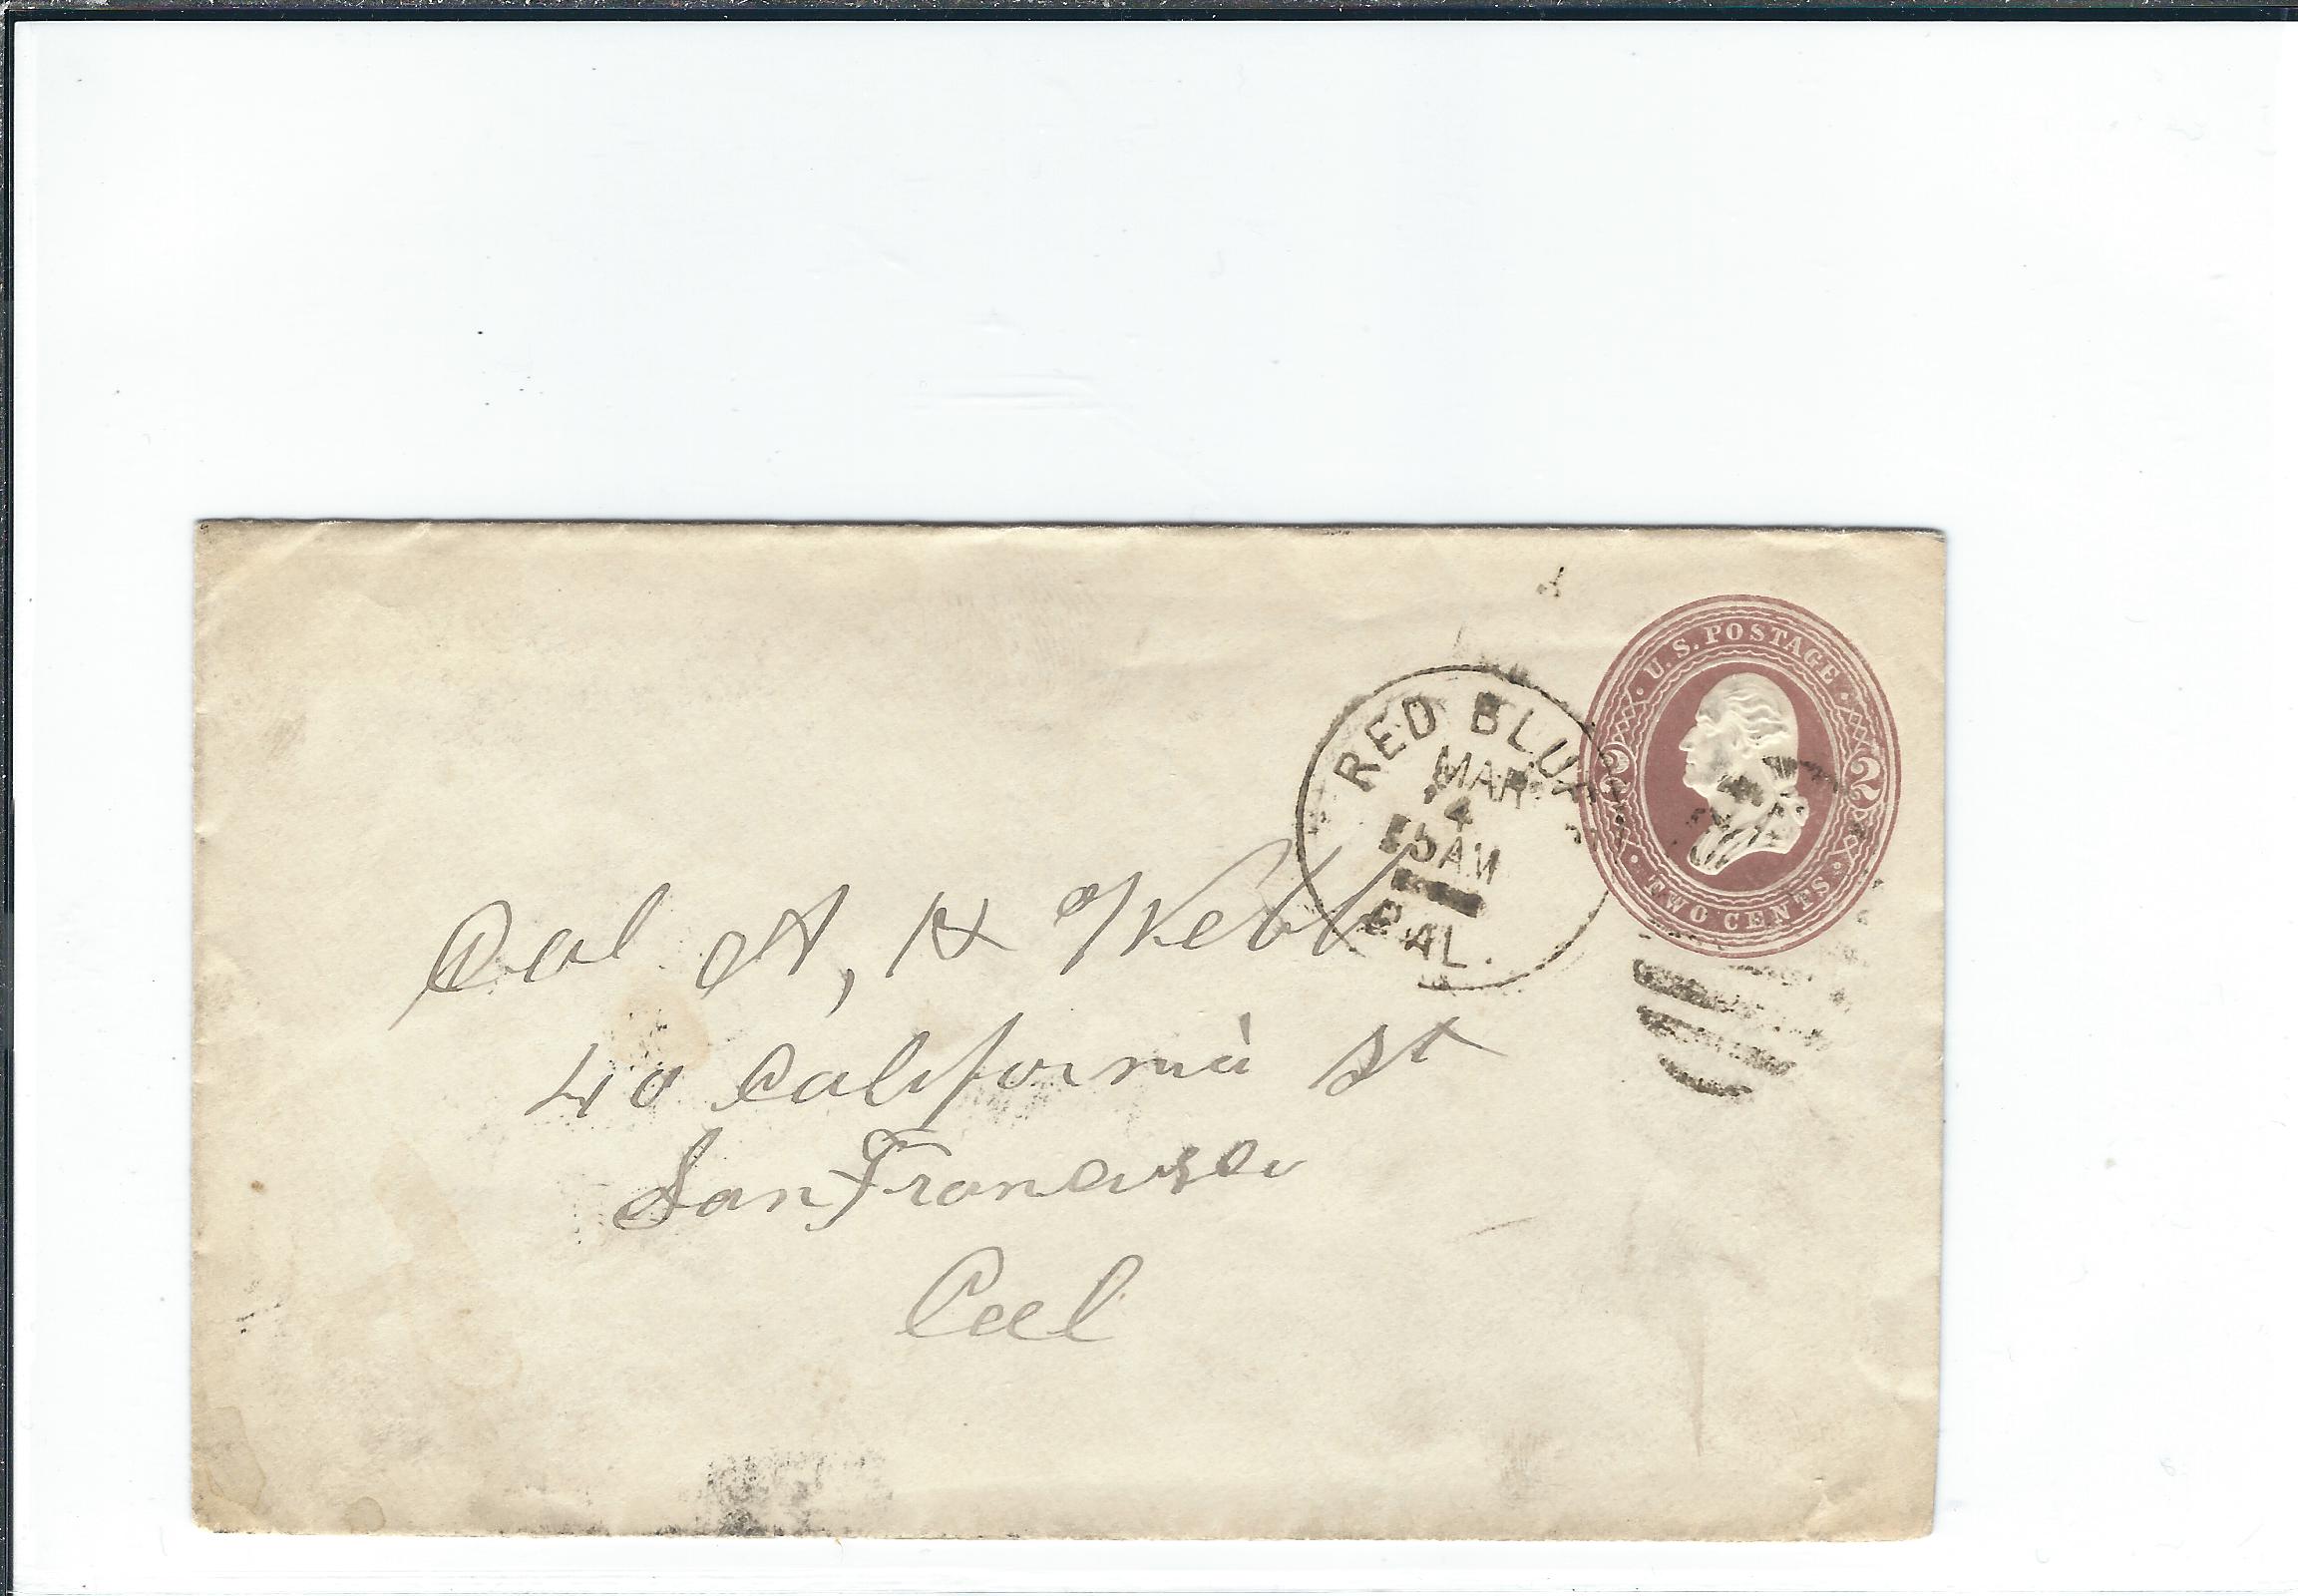 U.S. POSTAGE
2 2
TWO CENTS
RED BLUF
MAR
4
5 AM
CAL.
Col A, H Webb
40 California St
San Francisco
Cal